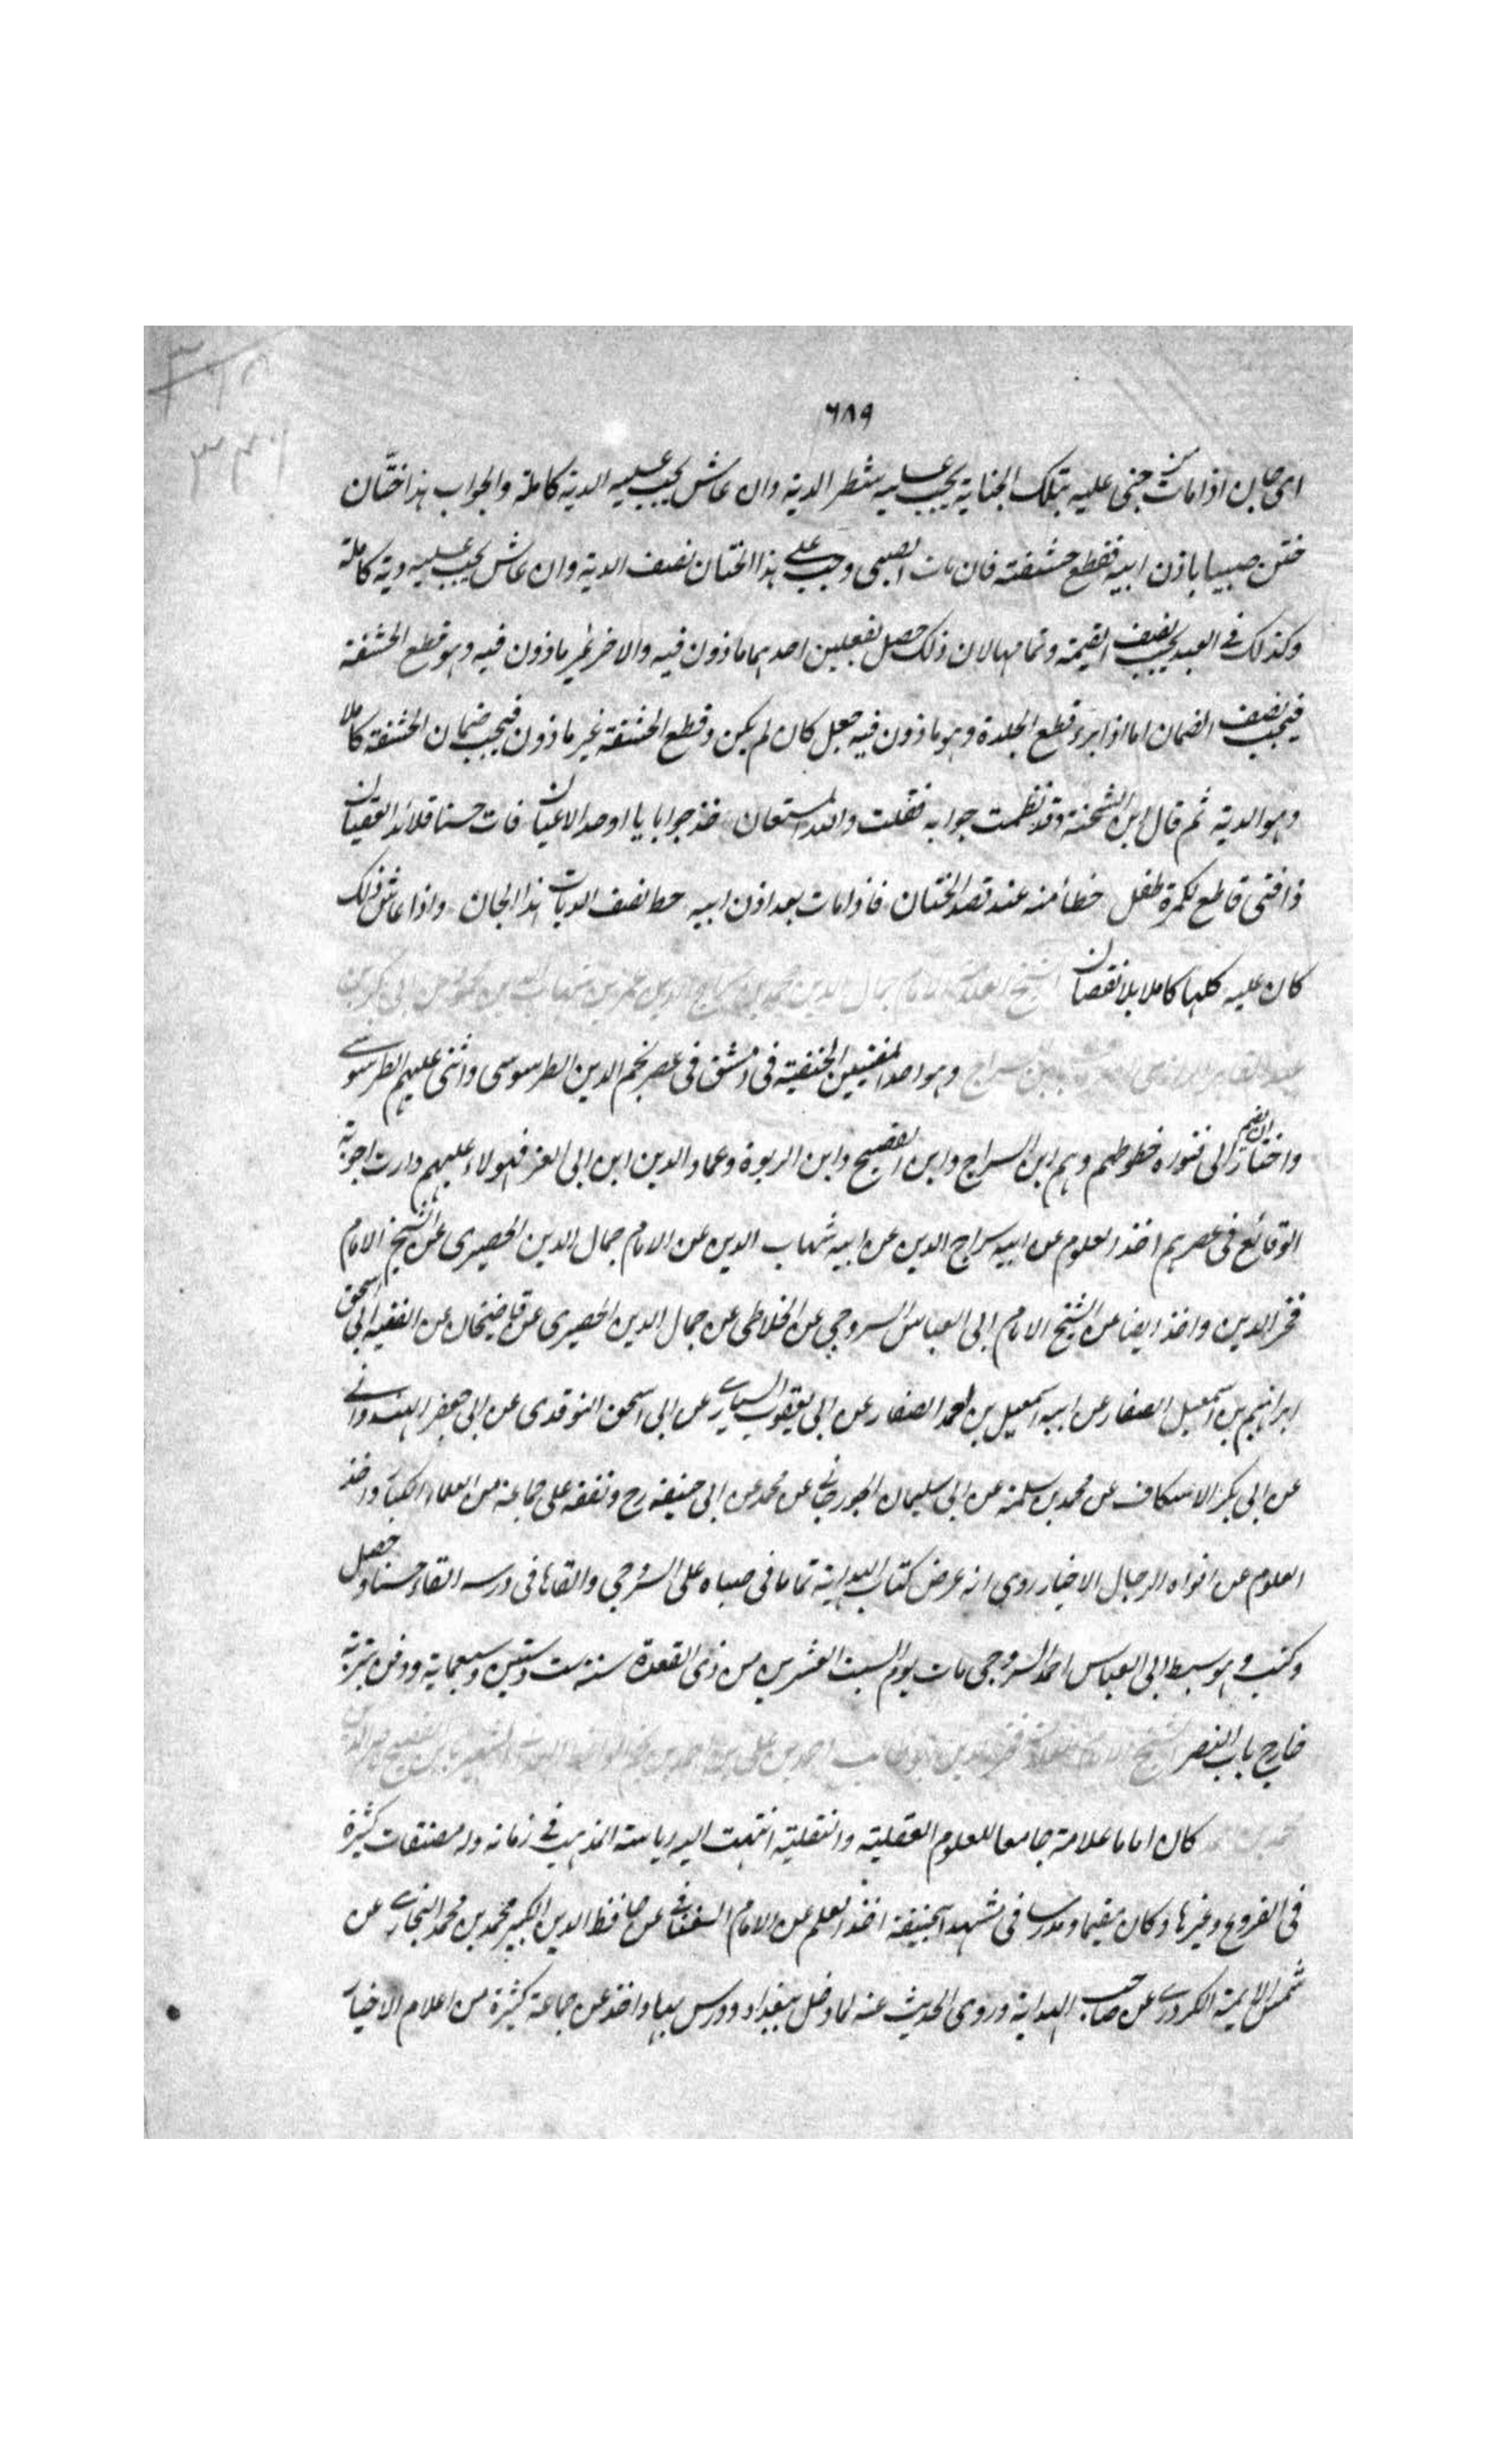 ٦٨٩
اى جان اذا مات من جنى عليه بتلك الجناية يجب عليه شطر الدية وان عاش يجب عليه الدية كاملة والجواب هذا ختان
ختن صبيا باذن ابيه فقطع حشفته فان مات الصبى وجب على هذا الختان نصف الدية وان عاش يجب عليه دية كاملة
وكذلك فى العبد يجب نصف القيمة وتمامها لان ذلك حصل بفعلين احدهما ماذون فيه والاخر غير ماذون فيه وهو قطع الحشفة
فيجب نصف الضمان اما اذا برء قطع الجلدة وهو ماذون فيه جعل كان لم يكن وقطع الحشفة غير ماذون فيجب ضمان الحشفة كاملا
وهو الدية ثم قال ابن الشحنة وقد نظمت جوابه فقلت والله المستعان خذ جوابا يا اوحد الاعيان فات حسنا قلائد العقيان
ذا فتى قاطع لكمرة طفل خطأ منه عند قصد الختان فاذا مات بعد اذن ابيه حط نصف الديات هذا الجان واذا عاش ذلك
كان عليه كلها كاملا بلا نقصان الشيخ العلامة الامام جمال الدين محمد بن سراج الدين عمر بن شهاب الدين محمود بن ابى بكر بن
عبد القاهر ابن السراج وهو احد المفتيين الحنفية فى دمشق فى عصر نجم الدين الطرسوسى واثنى عليهم الطرسوسى
واختار ان يضم الى فتوره خطوطهم وهم ابن السراج وابن الفصيح وابن الربوة وعماد الدين ابن ابى العز فهولاء عليهم دارت اجوبة
الوقائع فى عصرهم اخذ العلوم عن ابيه سراج الدين عن ابيه شهاب الدين عن الامام جمال الدين الحصيرى عن الشيخ الامام
فخر الدين واخذ ايضا عن الشيخ الامام ابى العباس السروجى عن الخلاطى عن جمال الدين الحصيرى عن قاضيخان عن الفقيه ابى اسحق
ابراهيم بن اسمعيل الصفار عن ابيه اسمعيل بن احمد الصفار عن ابى يعقوب السيارى عن ابى اسحق النوقدى عن ابى جعفر الهندوانى
عن ابى بكر الاسكاف عن محمد بن سلمة عن ابى سليمان الجورجانى عن محمد عن ابى حنيفة رح وتفقه على جماعة من العلماء الكبار واخذ
العلوم عن افواه الرجال الاخيار روى انه عرض كتاب الهداية تماما فى صباه على السروجى والقاها فى درسه القاء حسنا وحصل
وكتب وهو سبط ابى العباس احمد السروجى مات يوم السبت العشرين من ذى القعدة سنة ست وستين وسبعماية ودفن بتربة
خارج باب النصر الشيخ الامام العلامة فخر الدين ابو طالب احمد بن على بن احمد الشهير بابن الفصيح
كان اماما علامة جامعا للعلوم العقلية والنقلية انتهت اليه رياسة المذهب فى زمانه وله مصنفات كثيرة
فى الفروع وغيرها وكان مقيما ومدرسا فى مشهد ابيحنيفة اخذ العلم عن الامام السغناقى عن حافظ الدين الكبير محمد بن محمد البخارى عن
شمس الايمة الكردرى عن صاحب الهداية وروى الحديث عنه لما دخل ببغداد ودرس بها واخذ عن جماعة كثيرة من اعلام الاخيار